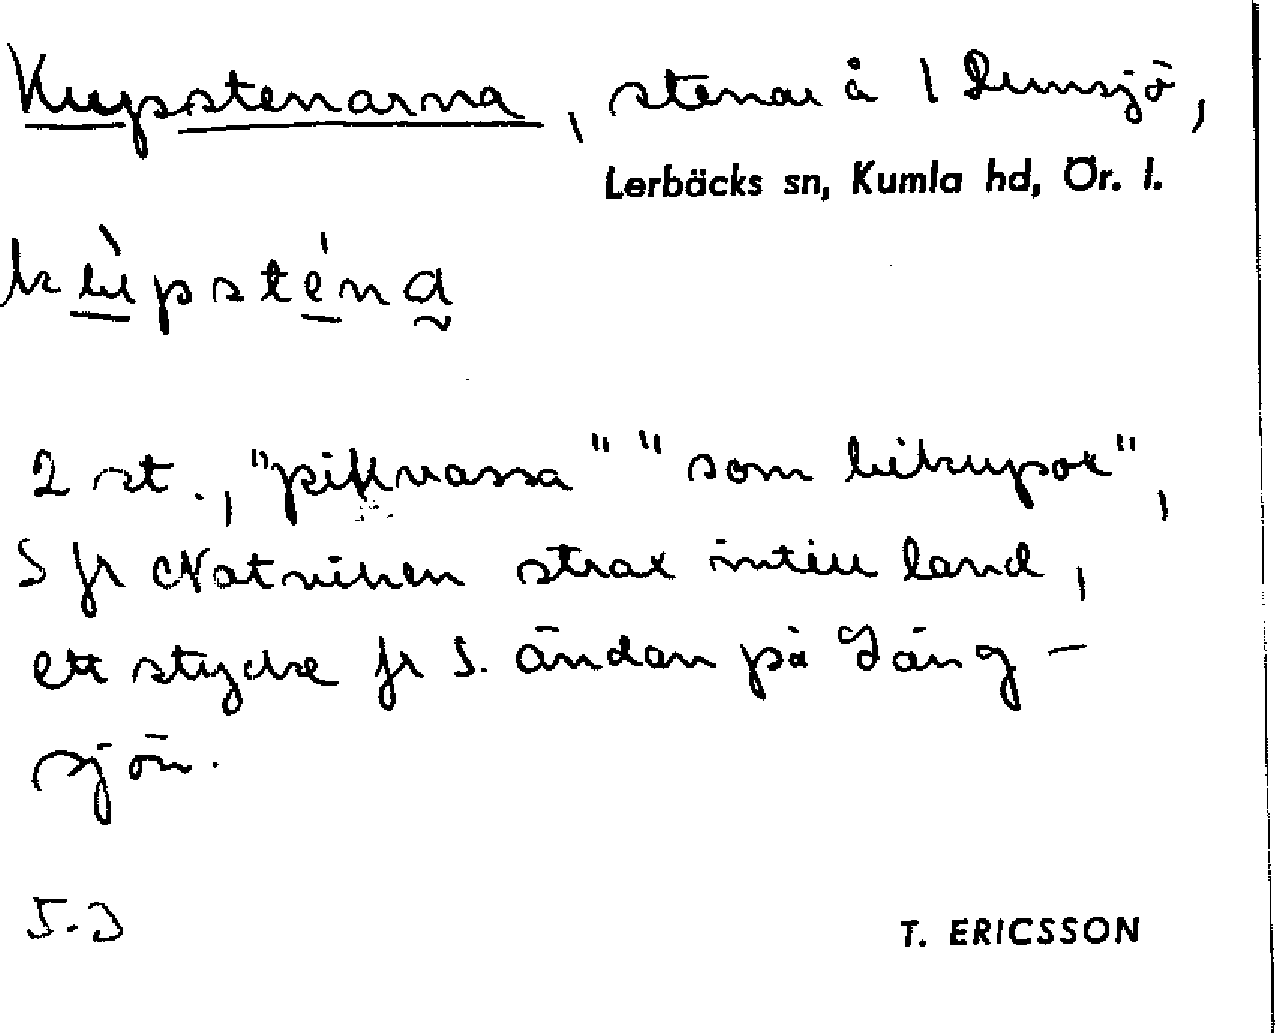 Kupstenarna, stenar å 1 Dunsjö,
Lerbäcks sn, Kumla hd, Ör. l.
kùpsténa
2 st., "pikvassa" "som bikupor",
S fr Notviken strax intill land,
ett stycke fr S. ändan på Lång-
sjön.
5.3
T. ERICSSON